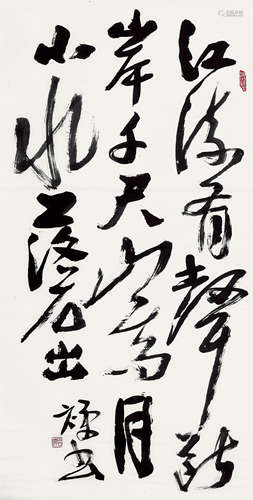 江流有聲斷
岸千尺山高月
小水落石出
書